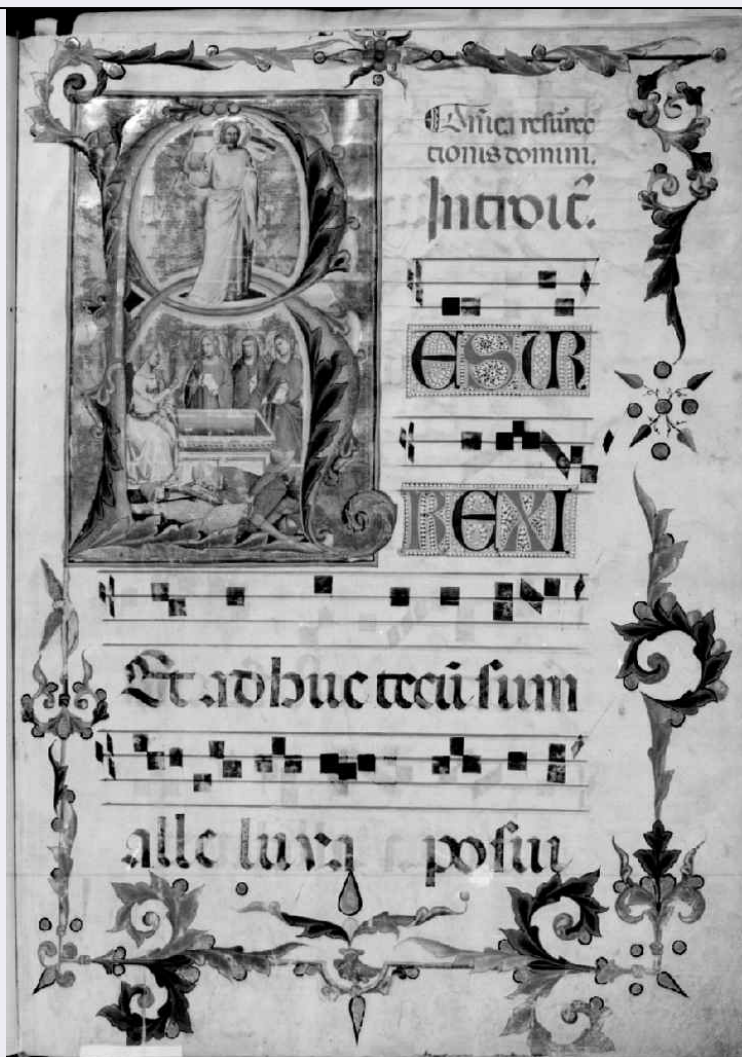 Dn̄ica resūrec
tionis domini.
Introit̄.
RESUR
REXI
Et adhuc tecū sum
alleluya posui